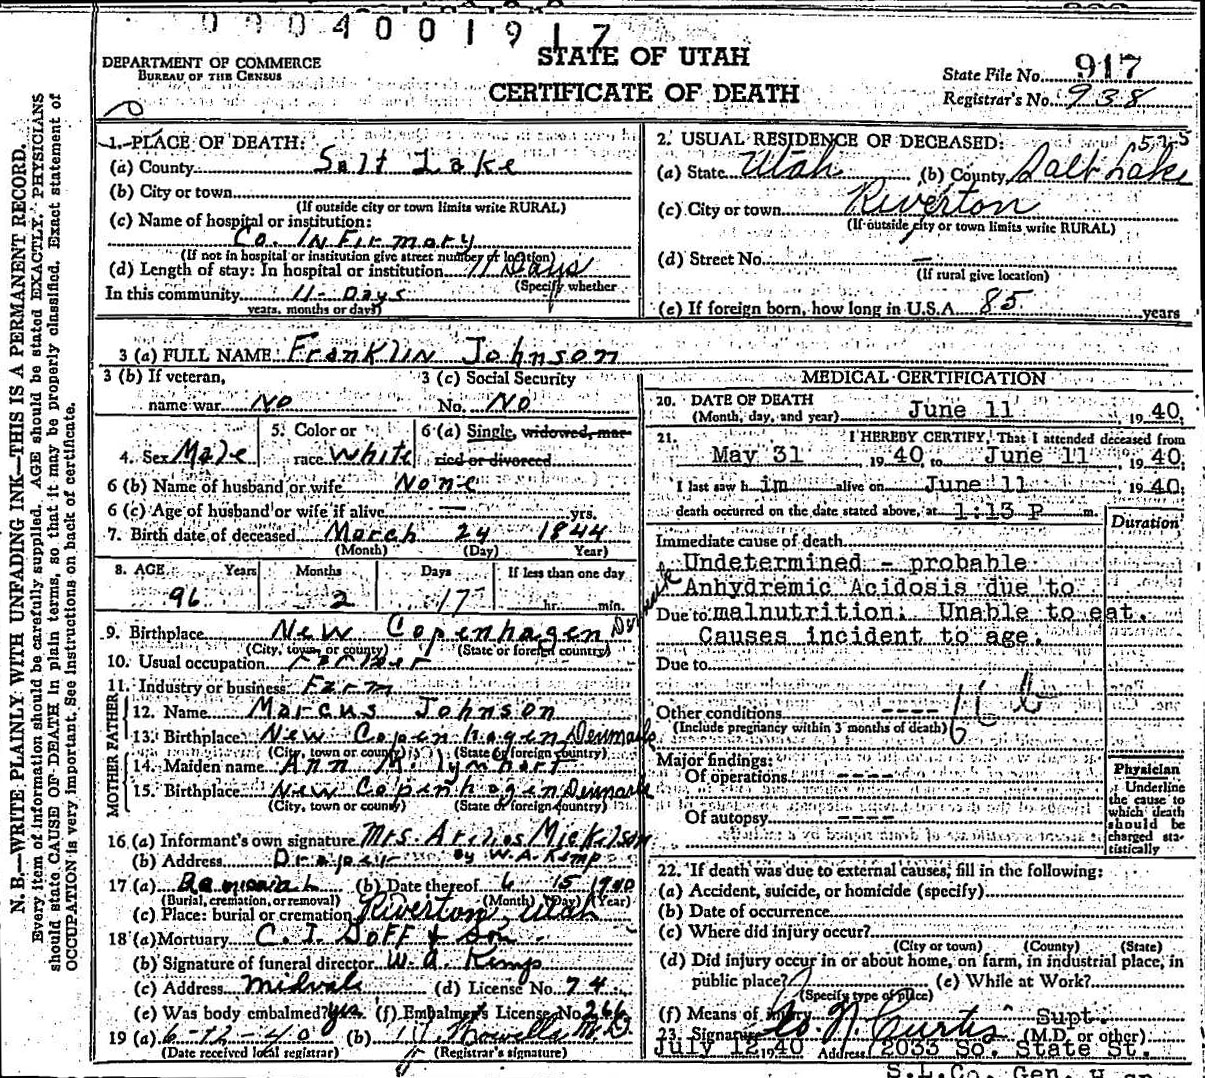 0004001917
DEPARTMENT OF COMMERCE
BUREAU OF THE CENSUS
STATE OF UTAH
CERTIFICATE OF DEATH
State File No. 917
Registrar's No. 938
N. B.—WRITE PLAINLY WITH UNFADING INK—THIS IS A PERMANENT RECORD.
Every item of information should be carefully supplied. AGE should be stated EXACTLY. PHYSICIANS
should state CAUSE OF DEATH in plain terms, so that it may be properly classified. Exact statement of
OCCUPATION is very important. See instructions on back of certificate.
1. PLACE OF DEATH:
(a) County Salt Lake
(b) City or town
(If outside city or town limits write RURAL)
(c) Name of hospital or institution:
Co. Infirmary
(If not in hospital or institution give street number or location)
(d) Length of stay: In hospital or institution 11 Days
(Specify whether
In this community 11-Days
years, months or days)
2. USUAL RESIDENCE OF DECEASED: 525
(a) State Utah (b) County Salt Lake
(c) City or town Riverton
(If outside city or town limits write RURAL)
(d) Street No. —
(If rural give location)
(e) If foreign born, how long in U.S.A. 85 years
3 (a) FULL NAME: Franklin Johnson
3 (b) If veteran, 3 (c) Social Security
name war No No. No
4. Sex Male 5. Color or race White 6 (a) Single, widowed, married or divorced
6 (b) Name of husband or wife None
6 (c) Age of husband or wife if alive — yrs.
7. Birth date of deceased March 24 1844
(Month) (Day) Year)
8. AGE Years Months Days If less than one day
96 2 17 hr. min.
9. Birthplace New Copenhagen
(City, town, or county) (State or foreign country)
10. Usual occupation
11. Industry or business Farm
FATHER
12. Name Marcus Johnson
13. Birthplace New Copenhagen Denmark
(City, town or county) (State or foreign country)
MOTHER
14. Maiden name Ann M.
15. Birthplace New Copenhagen Denmark
(City, town or county) (State or foreign country)
16 (a) Informant's own signature Mrs.
(b) Address Draper by W. A. Kemp
17 (a) Removal (b) Date thereof 6 15 1940
(Burial, cremation, or removal) (Month) (Day) (Year)
(c) Place: burial or cremation Riverton, Utah
18 (a) Mortuary C. J. Goff & Son
(b) Signature of funeral director W. A. Kemp
(c) Address Midvale (d) License No. 74
(e) Was body embalmed? yes (f) Embalmer's License No. 266
19 (a) 6-12-40 (b) M.D.
(Date received local registrar) (Registrar's signature)
MEDICAL CERTIFICATION
20. DATE OF DEATH
(Month, day, and year) June 11, 1940
21. I HEREBY CERTIFY, That I attended deceased from
May 31, 1940, to June 11, 1940;
I last saw him alive on June 11, 1940;
death occurred on the date stated above, at 1:13 P m.
Duration
Immediate cause of death
Undetermined - probable
Anhydremic Acidosis due to
Due to malnutrition. Unable to eat.
Causes incident to age.
Due to
Other conditions ----
(Include pregnancy within 3 months of death)
Major findings:
Of operations ----
Of autopsy ----
Physician
Underline
the cause to
which death
should be
charged sta-
tistically
22. If death was due to external causes, fill in the following:
(a) Accident, suicide, or homicide (specify)
(b) Date of occurrence
(c) Where did injury occur?
(City or town) (County) (State)
(d) Did injury occur in or about home, on farm, in industrial place, in
public place? (e) While at Work?
(Specify type of place)
(f) Means of injury
23. Signature Geo. N. Curtis Supt. (M.D. or other)
July 12, 1940 Address 2033 So. State St.
S.L.Co. Gen.